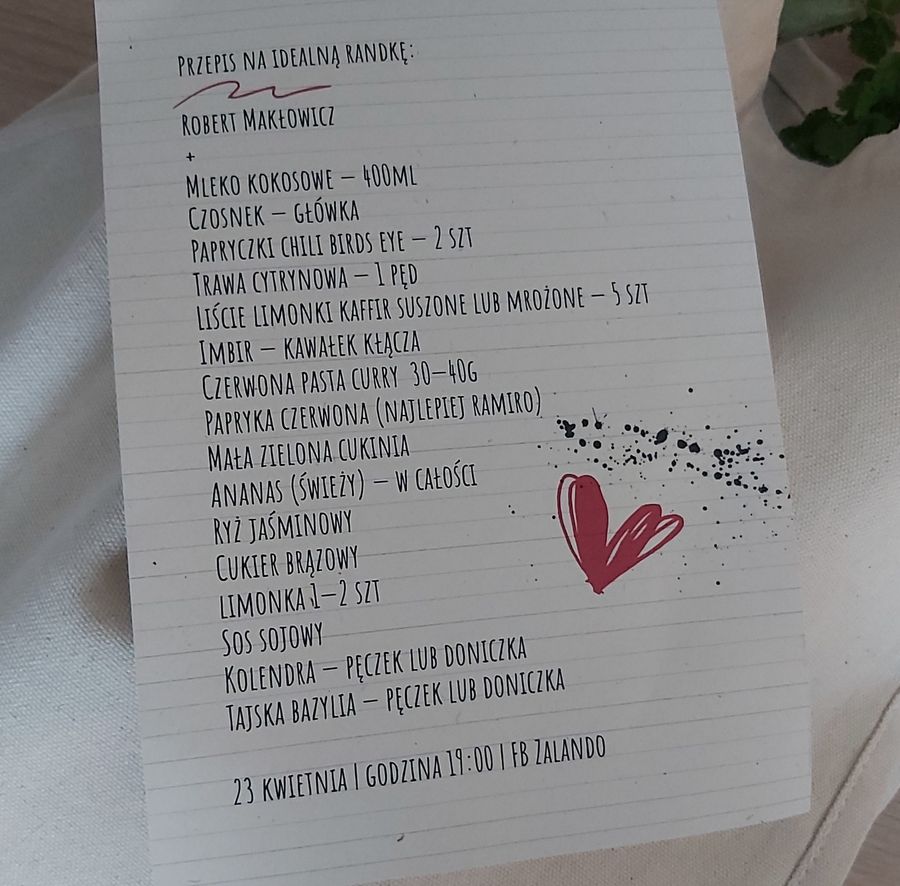 PRZEPIS NA IDEALNĄ RANDKĘ:
ROBERT MAKŁOWICZ
+
MLEKO KOKOSOWE – 400ML
CZOSNEK – GŁÓWKA
PAPRYCZKI CHILI BIRDS EYE – 2 SZT
TRAWA CYTRYNOWA – 1 PĘD
LIŚCIE LIMONKI KAFFIR SUSZONE LUB MROŻONE – 5 SZT
IMBIR – KAWAŁEK KŁĄCZA
CZERWONA PASTA CURRY 30–40G
PAPRYKA CZERWONA (NAJLEPIEJ RAMIRO)
MAŁA ZIELONA CUKINIA
ANANAS (ŚWIEŻY) – W CAŁOŚCI
RYŻ JAŚMINOWY
CUKIER BRĄZOWY
LIMONKA 1–2 SZT
SOS SOJOWY
KOLENDRA – PĘCZEK LUB DONICZKA
TAJSKA BAZYLIA – PĘCZEK LUB DONICZKA
23 KWIETNIA | GODZINA 19:00 | FB ZALANDO